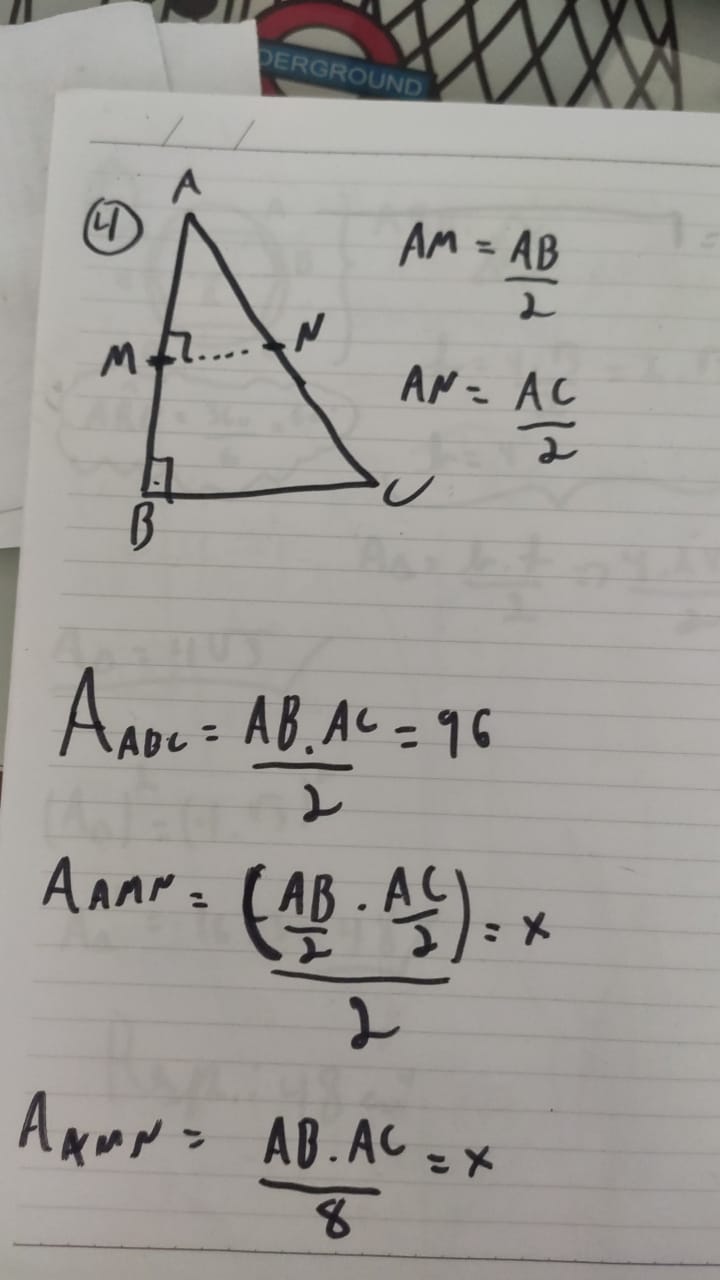 DERGROUND
/ /
A
4
AM = AB/2
M N
AN = AC/2
B C
A ABC = AB.AC/2 = 96
A AMN = (AB/2 . AC/2)/2 = x
A AMN = AB.AC/8 = x